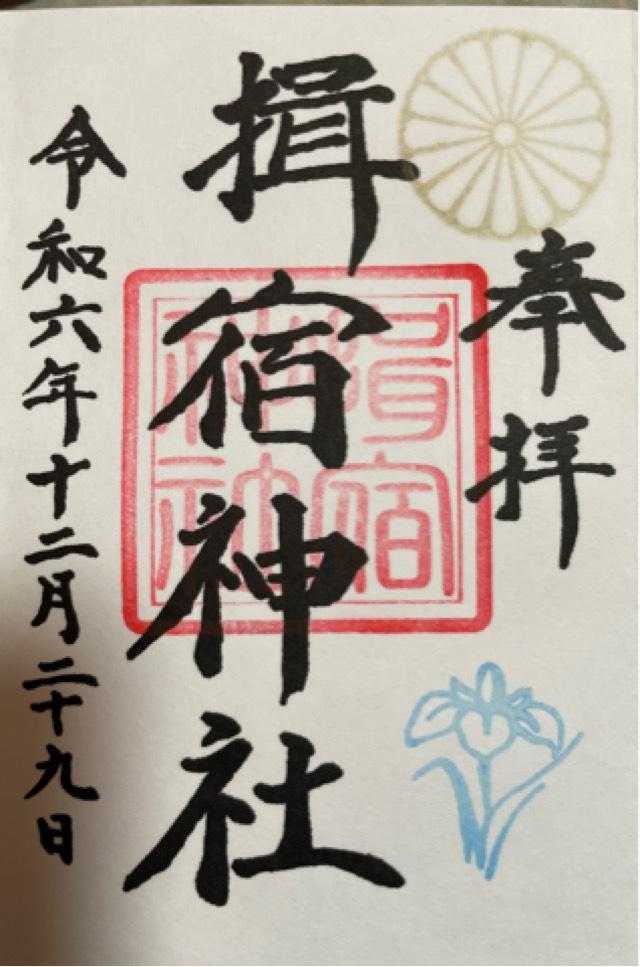 奉拝
揖宿神社
揖宿神社
令和六年十二月二十九日